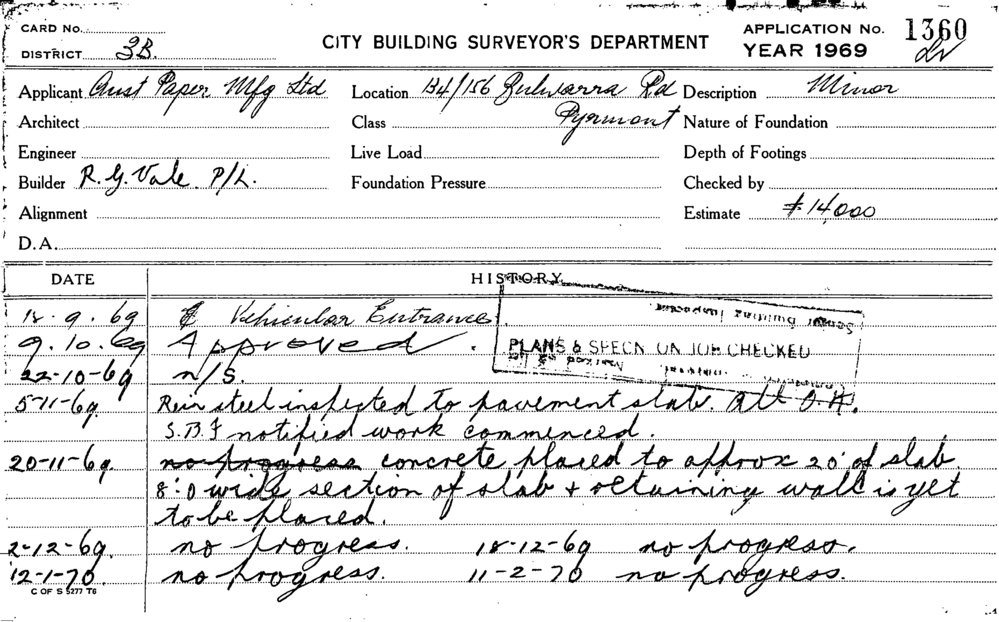 CARD No.
DISTRICT 3B.
CITY BUILDING SURVEYOR'S DEPARTMENT
APPLICATION No. 1360
YEAR 1969
Applicant Aust Paper Mfg Ltd Location 134/156 Bulwarra Rd Description Minor
Architect Class Pyrmont Nature of Foundation
Engineer Live Load Depth of Footings
Builder R.G. Vale P/L. Foundation Pressure Checked by
Alignment Estimate $14,000
D.A.
DATE HISTORY
18.9.69 Vehicular Entrance
9.10.69 Approved.
PLANS & SPECN ON JOB CHECKED
Senior Building Inspector
22-10-69 n/S.
5-11-69. Rein steel inspected to pavement slab. All O.K.
S.B.I notified work commenced.
20-11-69. no progress concrete placed to approx 20' of slab
8'.0 wide section of slab + retaining wall is yet
to be placed.
2-12-69. no progress. 18-12-69 no progress.
12-1-70. no progress. 11-2-70 no progress.
C OF S 5277 T6